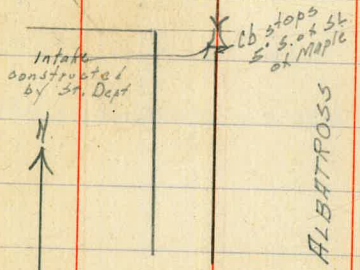 Intake
constructed
by St. Dept
Cb stops
5' S. of SL
of Maple
N.
ALBATROSS